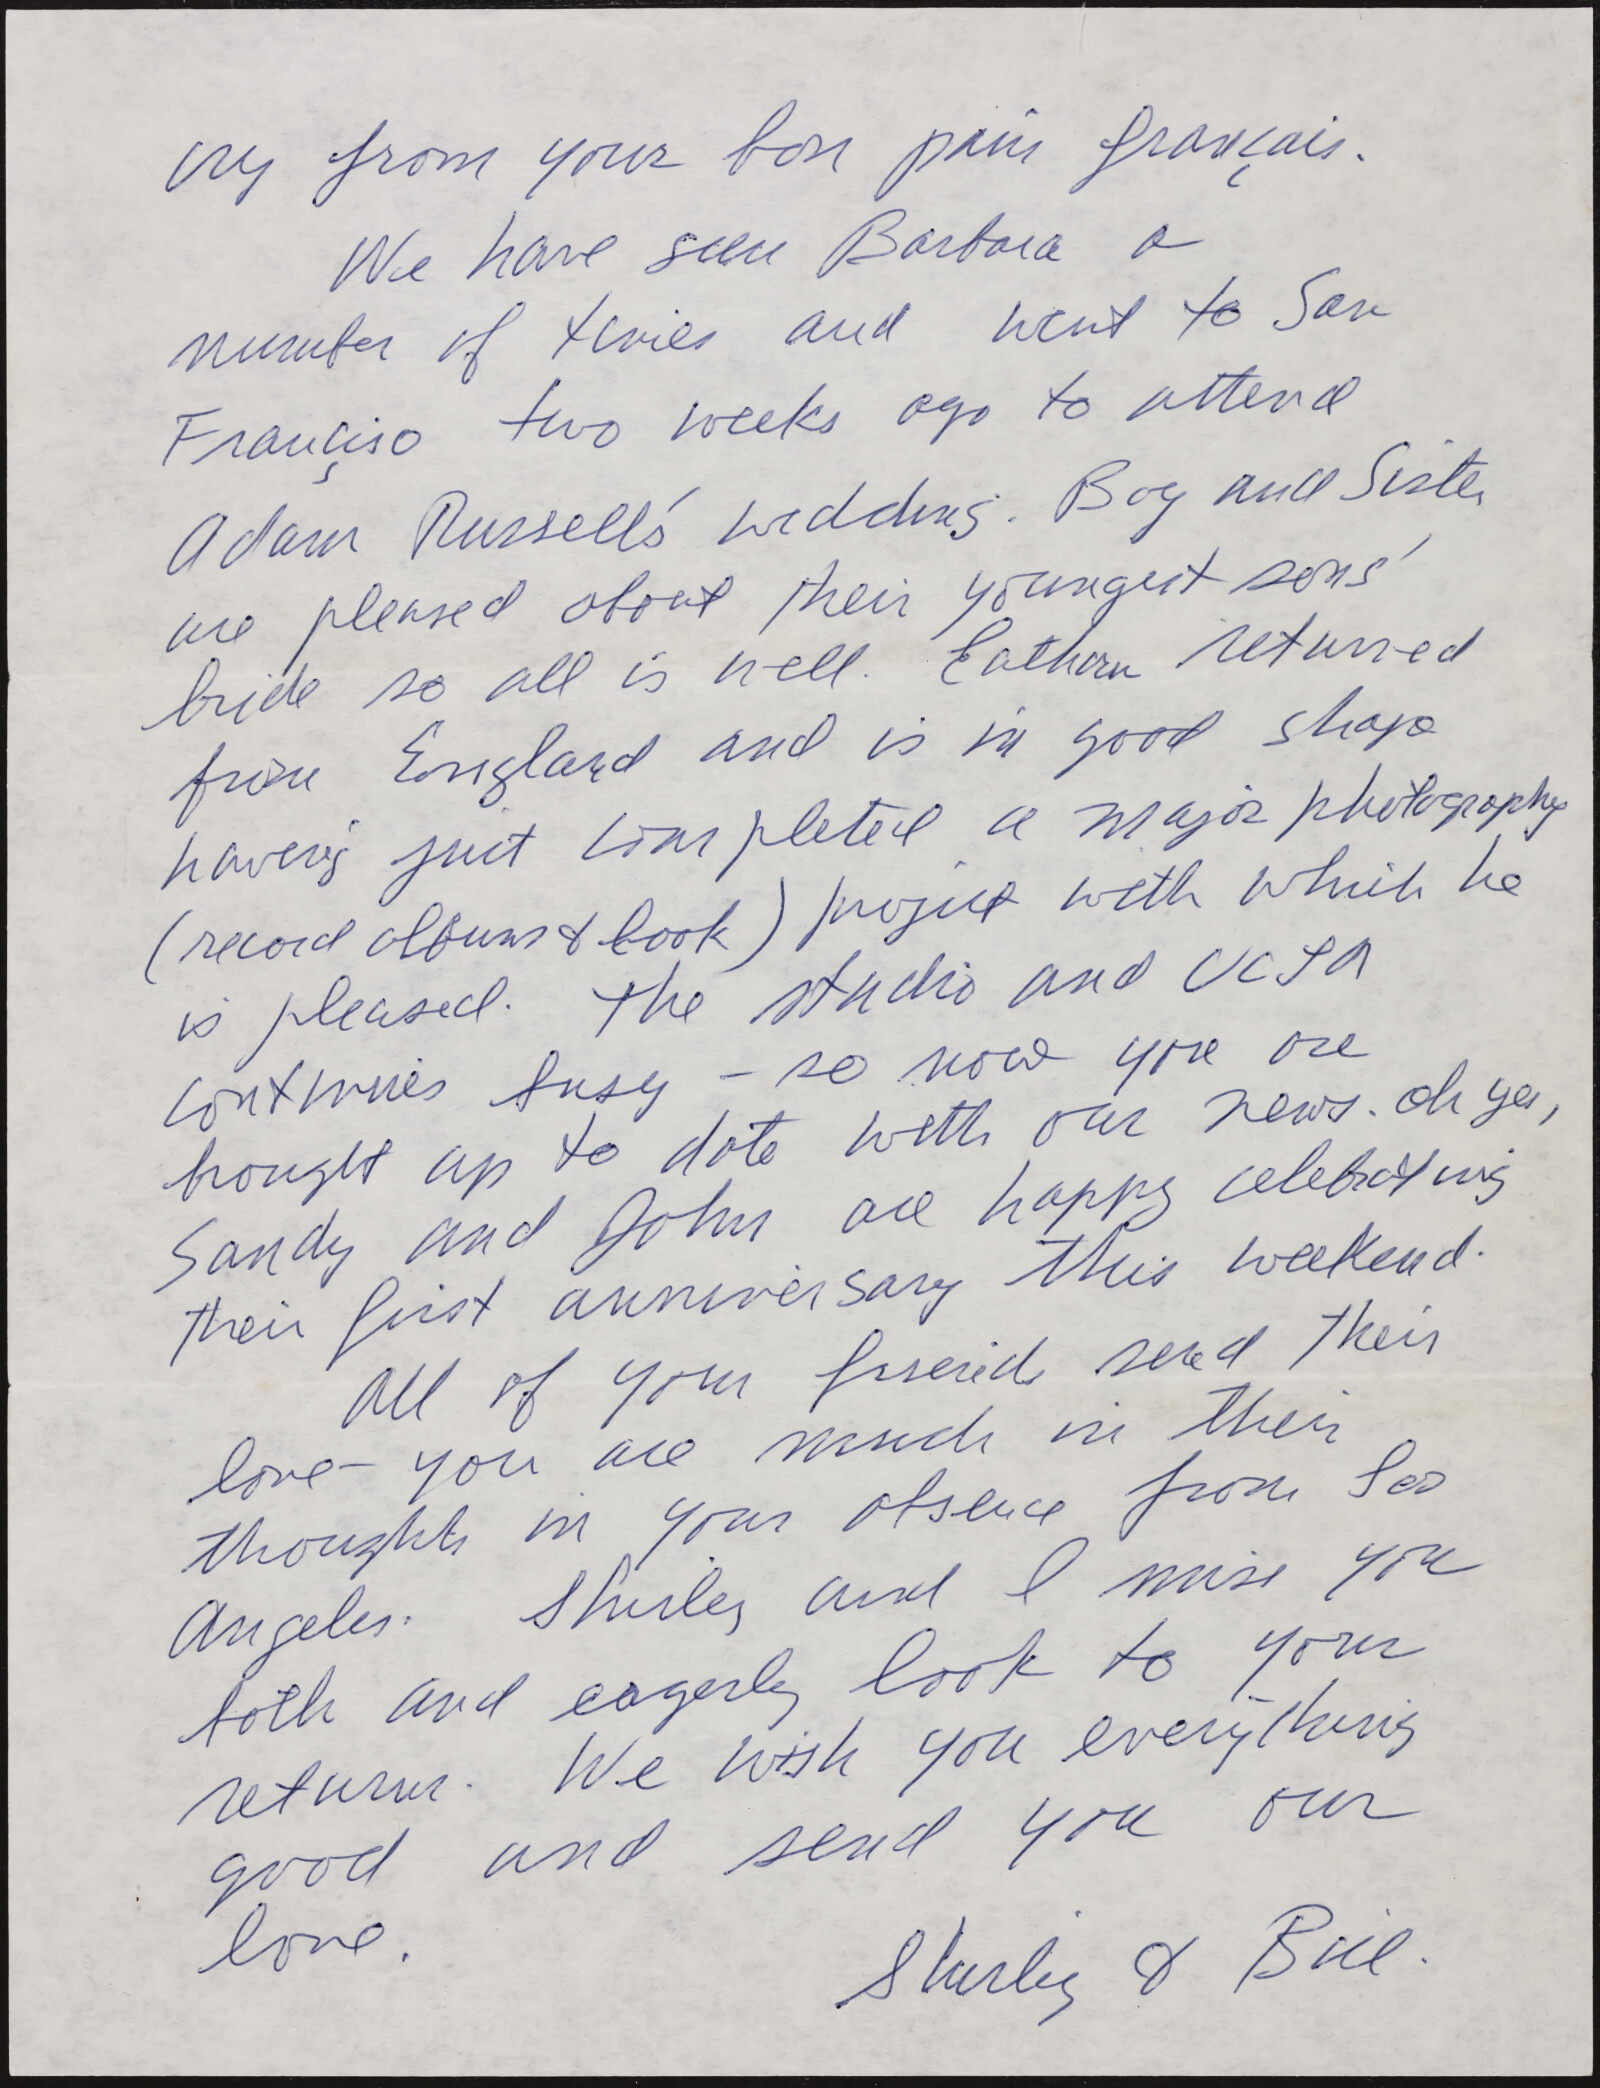 cry from your bon pain français.
We have seen Barbara a
number of times and went to San
Françiso two weeks ago to attend
Adam Russell's wedding. Boy and Sister
are pleased about their youngest sons'
bride so all is well. Eathan returned
from England and is in good shape
having just completed a major photography
(record albums & book) project with which he
is pleased. The studio and UCLA
continues busy – so now you are
brought up to date with our news. Oh yes,
Sandy and John are happy celebrating
their first anniversary this weekend.
All of your friends send their
love – you are much in their
thoughts in your absence from Los
Angeles. Shirley and I miss you
both and eagerly look to your
return. We wish you everything
good and send you our
love.
Shirley & Bill.